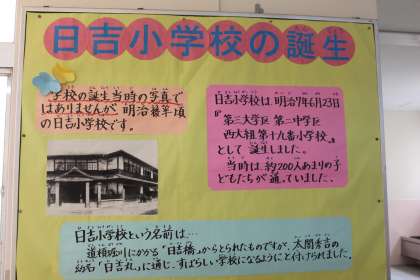 日吉小学校の誕生
学校の誕生当時の写真で
はありませんが、明治後半頃
の日吉小学校です。
日吉小学校は、明治7年6月23日
『第三大学区 第二中学区
西大組 第十九番小学校』
として誕生しました。
当時は、約200人あまりの子
どもたちが通っていました。
日吉小学校という名前は…
道頓堀川にかかる「日吉橋」からとられたものですが、太閤秀吉の
幼名「日吉丸」に通じ、すばらしい学校になるようにと付けられました。